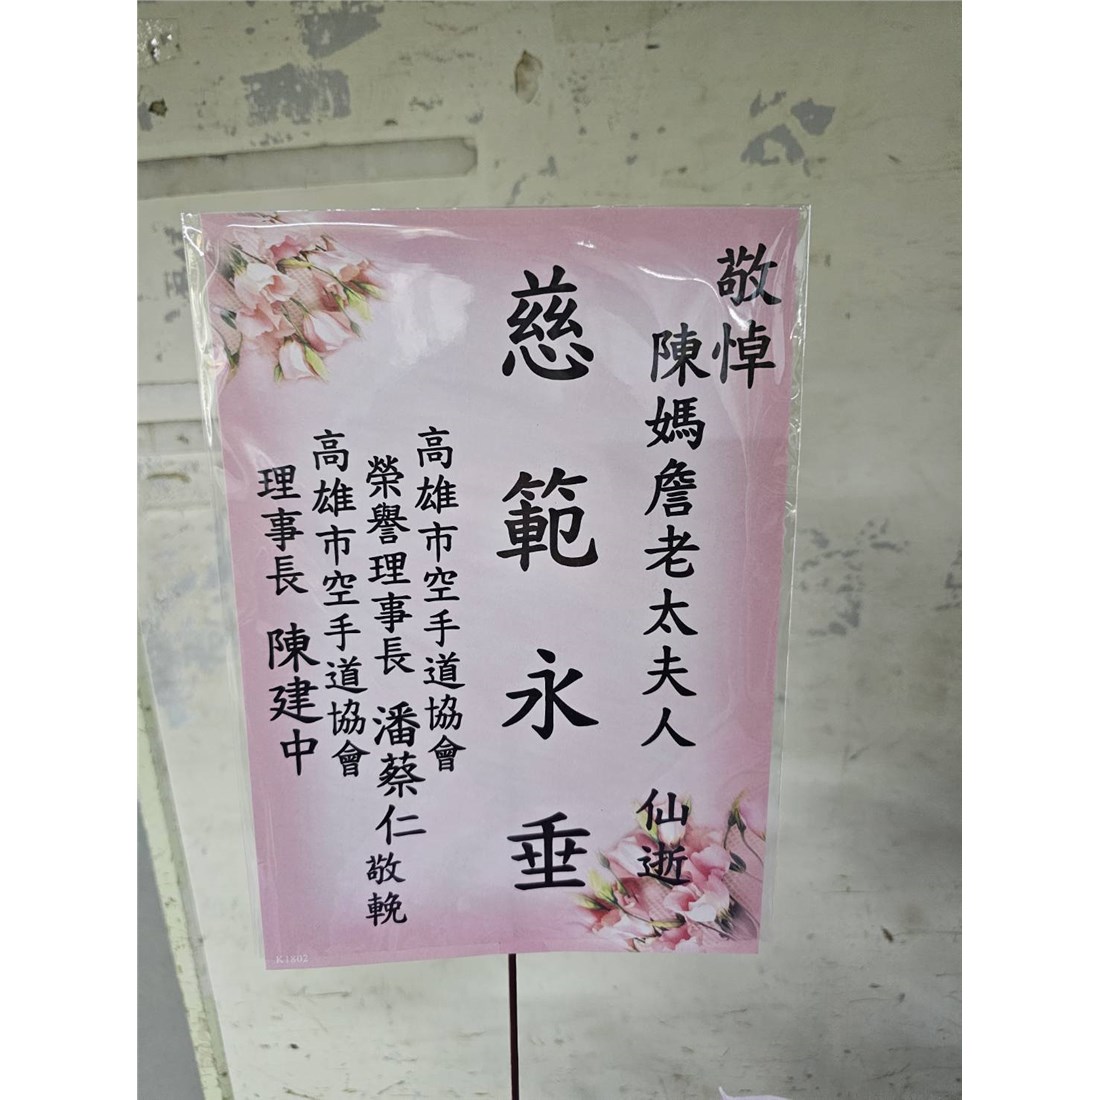 敬悼
陳媽詹老太夫人 仙逝
慈範永垂
高雄市空手道協會
榮譽理事長 潘蔡仁 敬輓
高雄市空手道協會
理事長 陳建中
K1802